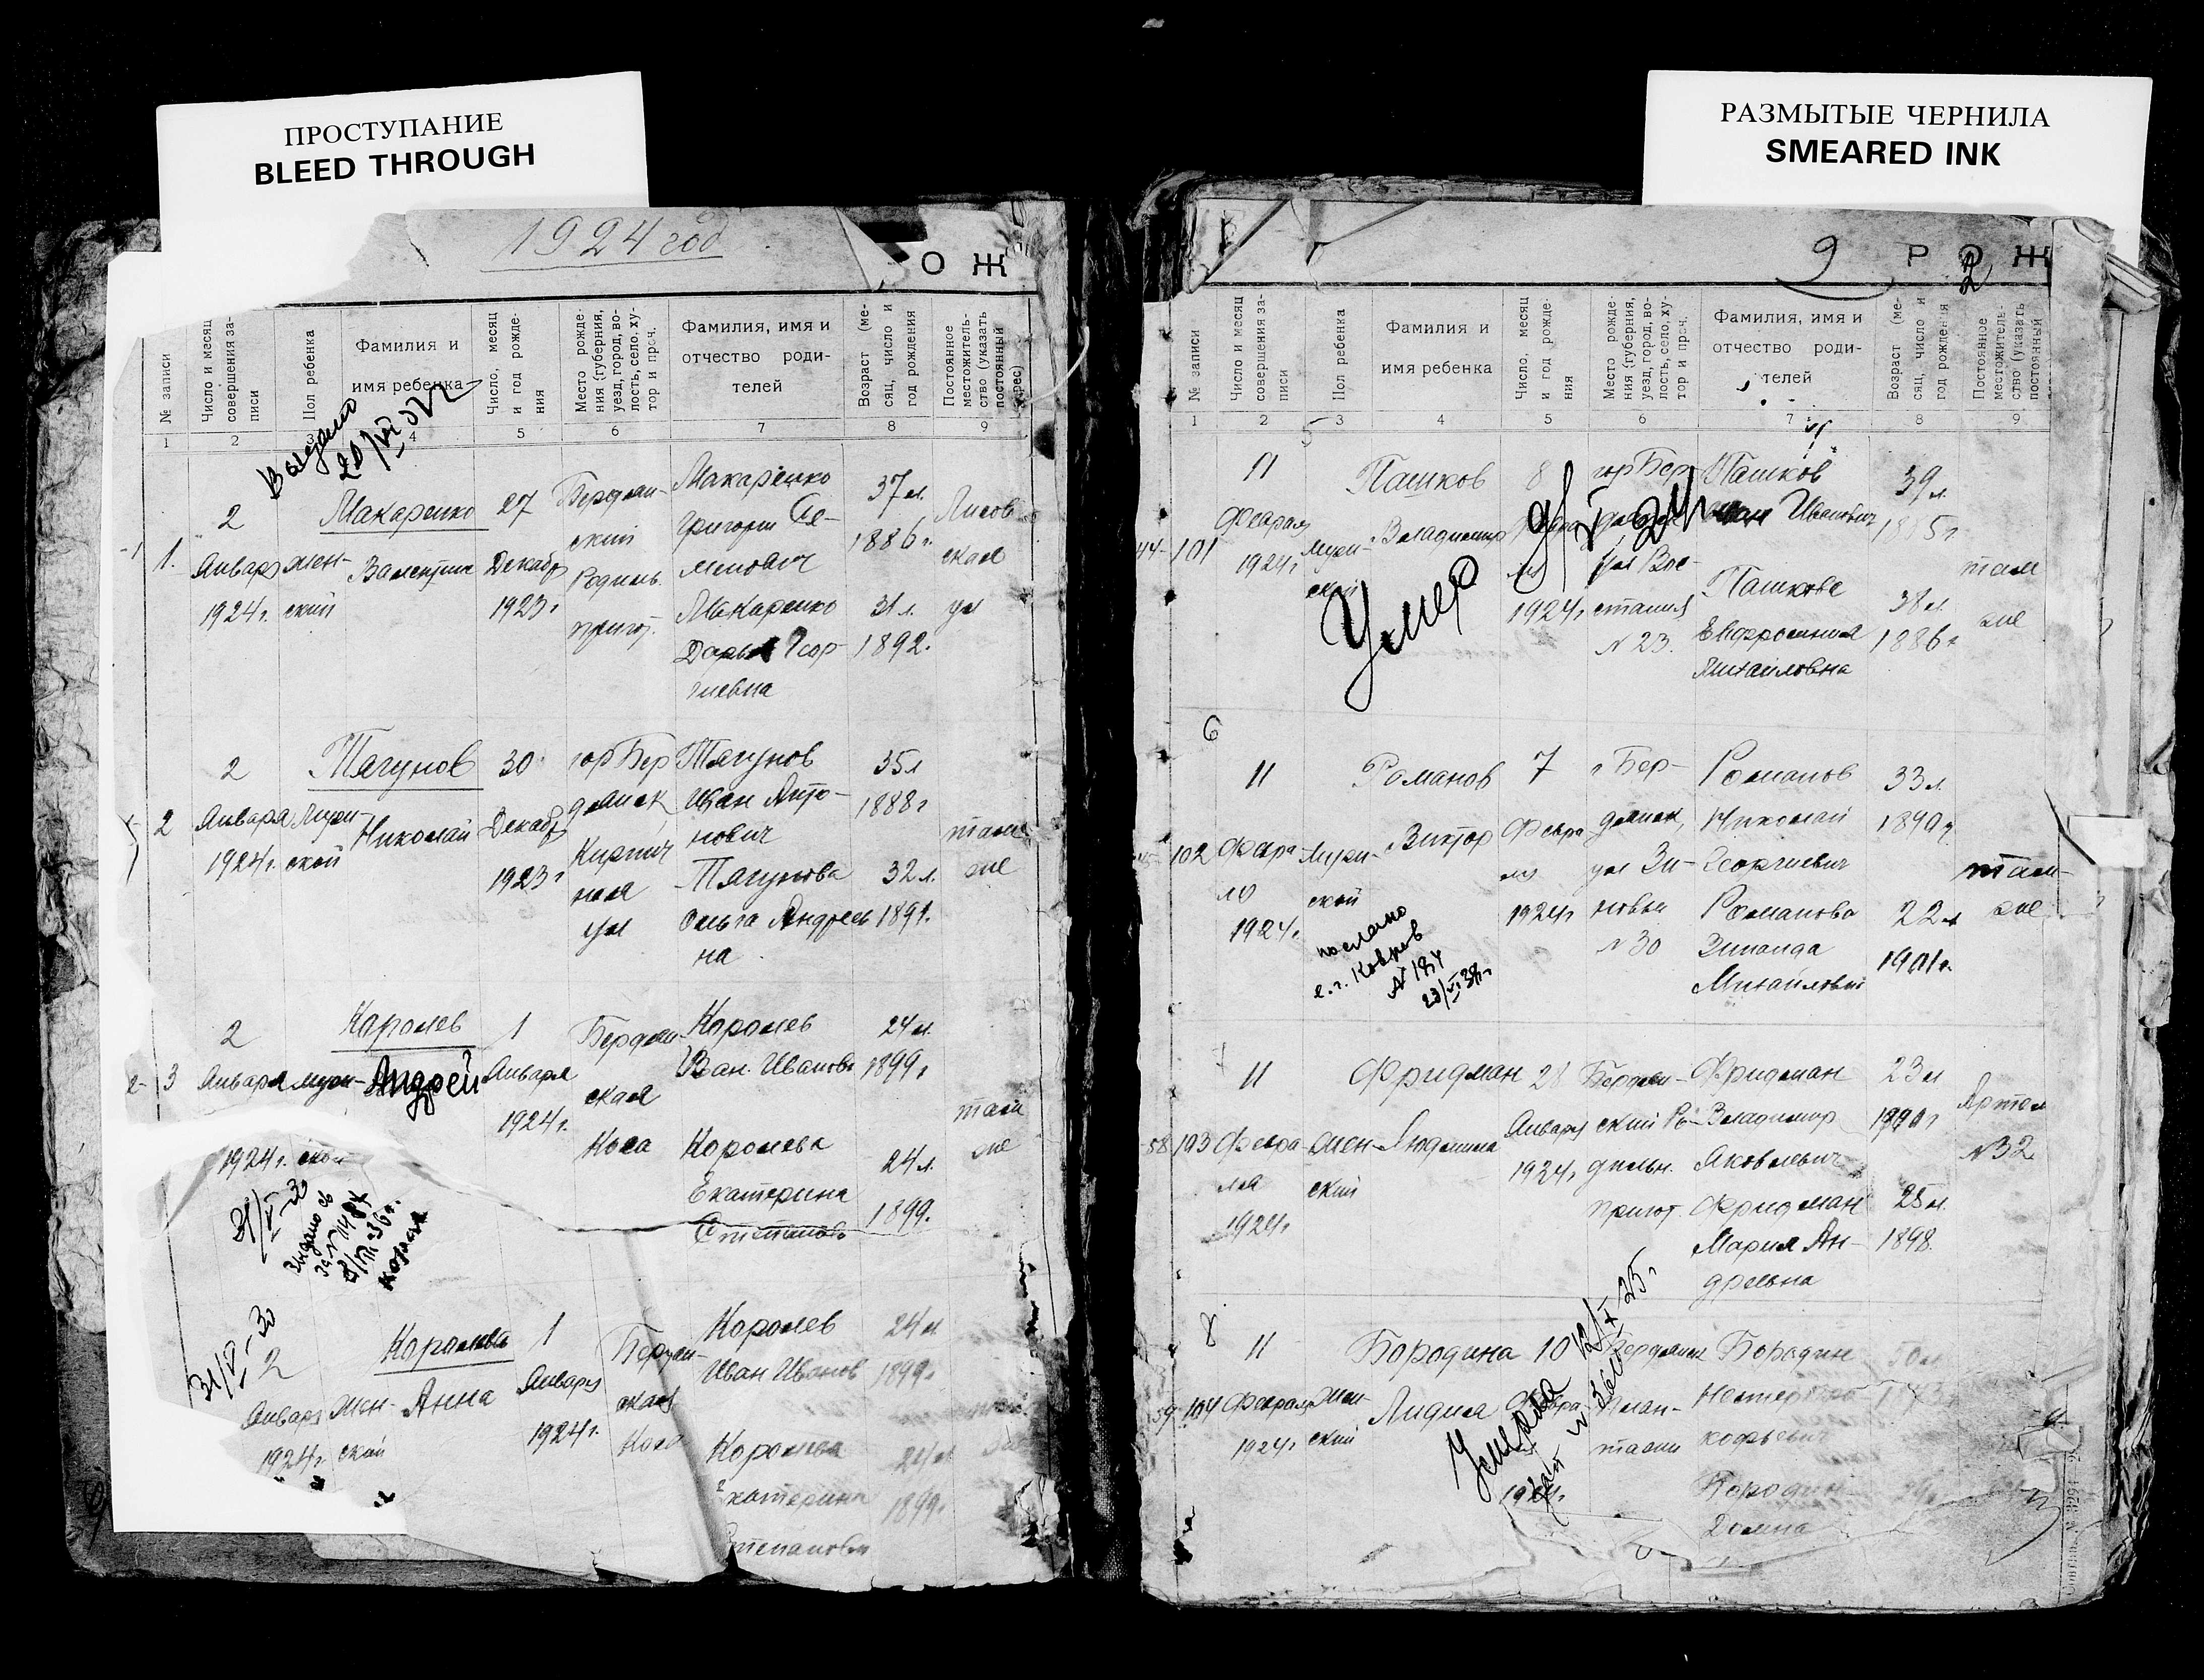 ПРОСТУПАНИЕ
BLEED THROUGH
РАЗМЫТЫЕ ЧЕРНИЛА
SMEARED INK
1924 год
О Ж
№ записи
Число и месяц совершения за-
писи
Пол ребенка
Фамилия и
имя ребенка
Число, месяц
и год рожде-
ния
Место рожде-
ния (губерния,
уезд, город, во-
лость, село, ху-
тор и проч.
Фамилия, имя и
отчество роди-
телей
Возраст (ме-
сяц, число и
год рождения
Постоянное
местожитель-
ство (указать
постоянный
адрес)
1 2 3 4 5 6 7 8 9
Выдано
20/VI
1. 2 Января 1924г. жен-ский
Макаренко
Валентина
27 Декабр 1923г
Бердян-
ский
Родильн.
приют.
Макаренко
Григорий Се-
менович
Макаренко
Дарья Геор-
гиевна
37 л.
1886г.
31 л.
1892.
Лисов
ская
ул
2 2 Января 1924г. муж-ской
Тягунов
Николай
30 Декабр 1923г
гор Бер
дянск
Кирпич
ная
ул
Тягунов
Иван Анто-
нович
Тягунова
Ольга Андреев
на
35 л
1888г
32 л.
1891.
там
же
3 2 Января 1924г. муж-ской
Королев
Андрей
1 Января 1924г.
Бердян-
ская
Коса
Королев
Иван Иванов
Королева
Екатерина
Степанов
24 л.
1899г
24 л.
1899.
там
же
31/V-30
Выдано св
за №1484
копия
31/V-30
2 Января 1924г. жен-ский
Королева
Анна
1 Января 1924г.
Бердян-
ская
Коса
Королев
Иван Иванов
Королева
Екатерина
Степановн
24 л
1899г.
24 л
1899.
9 Р О Ж
2
№ записи
Число и месяц
совершения за-
писи
Пол ребенка
Фамилия и
имя ребенка
Число, месяц
и год рожде-
ния
Место рожде-
ния (губерния,
уезд, город, во-
лость, село, ху-
тор и проч.
Фамилия, имя и
отчество роди-
телей
Возраст (ме-
сяц, число и
год рождения
Постоянное
местожитель-
ство (указать
постоянный
1 2 3 4 5 6 7 8 9
5
44 101 11 Февраля 1924г муж-ской
Пашков
Владимир
8
1924г
гор Бер-
ул Вос-
стания
№ 23.
Пашков
Иванович
Пашкова
Евфросиния
Михайловна
39 л.
38 л.
1886г
там
же
Умер
6
102 11 Февра-ля 1924г. муж-ской
Романов
Виктор
7 Февра ля 1924г
г Бер-
дянск,
ул Зи-
новьев
№ 30
Романов
Николай
Георгиевич
Романова
Зинаида
Михайловн
33 л.
1890г
22 л
1901г.
там-
же
послано
в г. Ковров
7
58 103 11 Февра-ля 1924г жен-ский
Фридман
Людмила
28 Января 1924г
Бердян-
ский Ро-
дильн.
приют
Фридман
Владимир
Яковлевич
Фридман
Мария Ан-
дреевна
23 л
1890г
25 л.
1898.
Артел
№32
8
59 104 11 Февраля 1924г жен-ский
Бородина
Лидия
10 Февра- 1924г.
Бердянск
Бородин
Нестер Про
кофьевич
Бородин
Домна
Умерла
12/X 25г